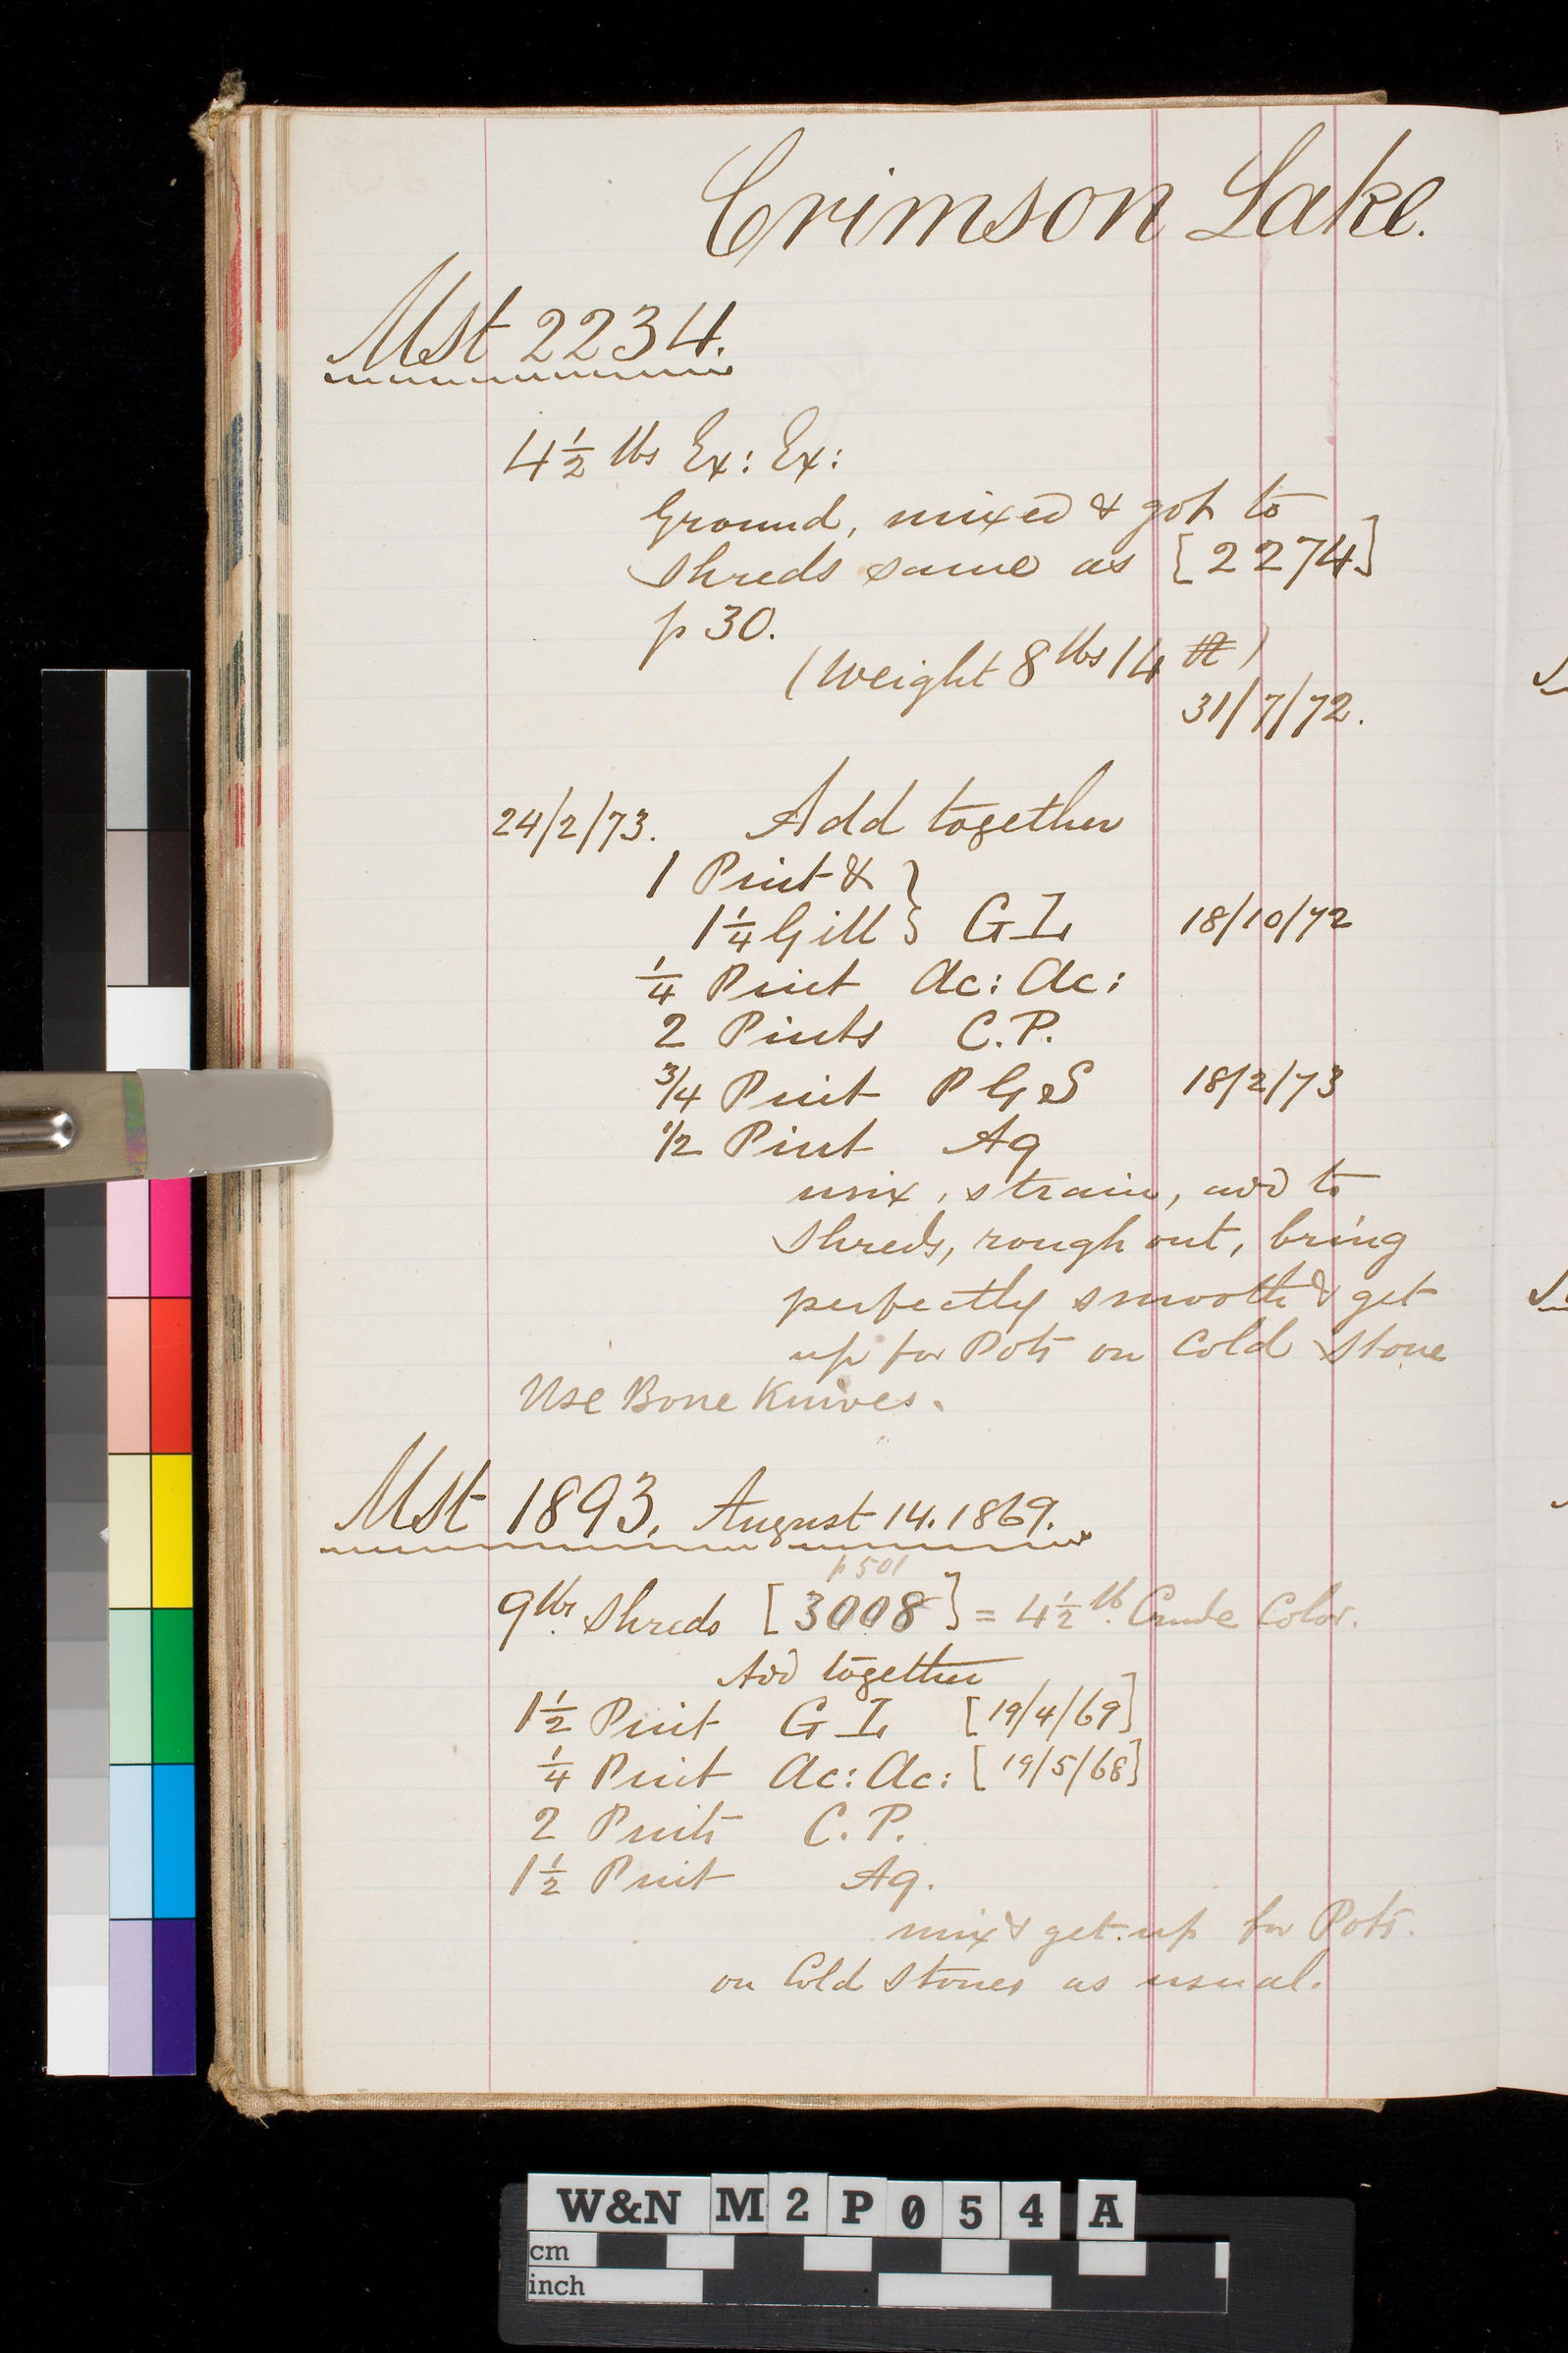 Crimson Lake.
Mst 2234.
4½ lbs Ex: Ex:
Ground, mixed & got to
shreds same as [2274]
p 30.
(Weight 8 lbs 14
31/7/72.
24/2/73. Add together
1 Pint & }
1¼ Gill } GL 18/10/72
¼ Pint Ac: Ac:
2 Pints C.P.
3/4 Pint P G S 18/2/73
1/2 Pint Aq
mix, strain, add to
shreds, rough out, bring
perfectly smooth & get
up for Pots on Cold Stone
Use Bone Knives.
Mst 1893. August 14. 1869.
p 501
9 lbs. Shreds [3008] = 4½ lb. Crude Color.
Add together
1½ Pint GL [19/4/69]
¼ Pint Ac: Ac: [19/5/68]
2 Pints C.P.
1½ Pint Aq.
mix & get up for Pots.
on Cold Stones as usual.
W&N M2P054A
cm
inch